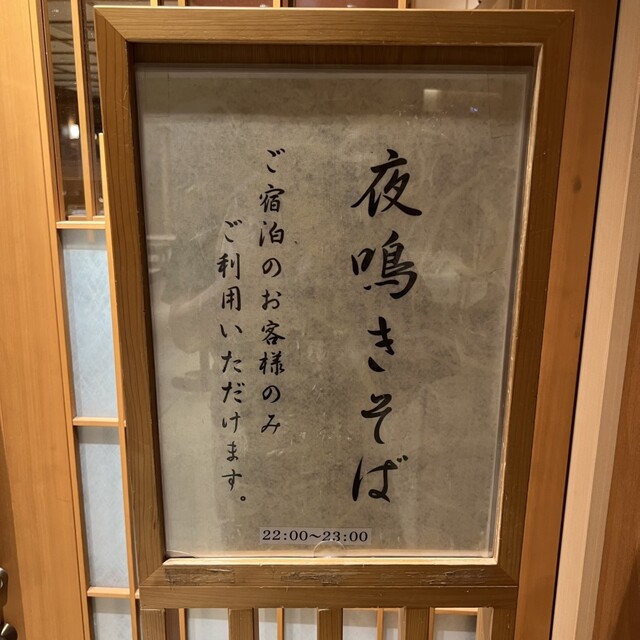 夜鳴きそば
ご宿泊のお客様のみ
ご利用いただけます。
22:00〜23:00